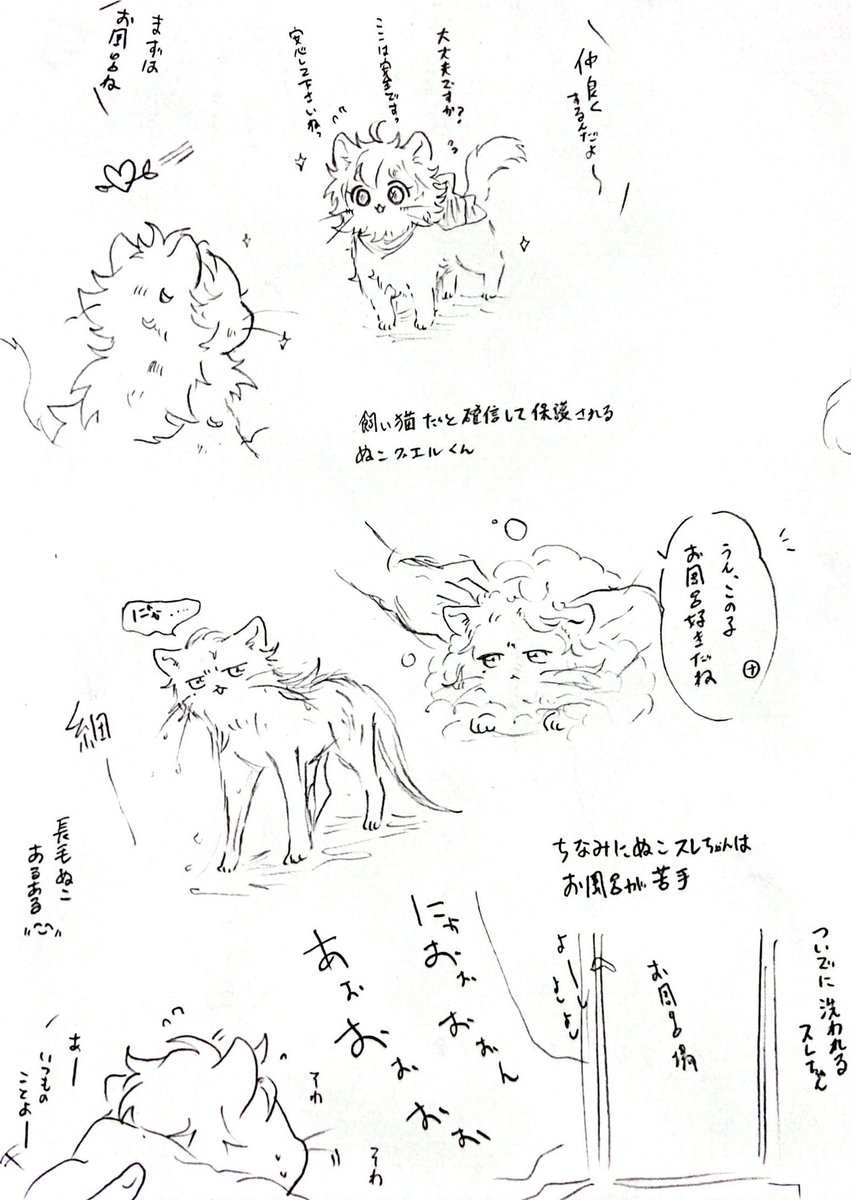 仲良く
するんだよ〜
大丈夫ですか?
ここは安全ですっ
安心して下さいねっ
まずは
お風呂ね
飼い猫だと確信して保護される
ぬこグエルくん
うん、この子
お風呂好きだね
にゃ……
細
長毛ぬこ
あるある
ちなみにぬこスレちゃんは
お風呂が苦手
ついでに洗われる
スレちゃん
お風呂場
よーし
よしよし
にゃおぉおぉん
あぉおぉおお
そわ
そわ
あー
いつもの
ことよー